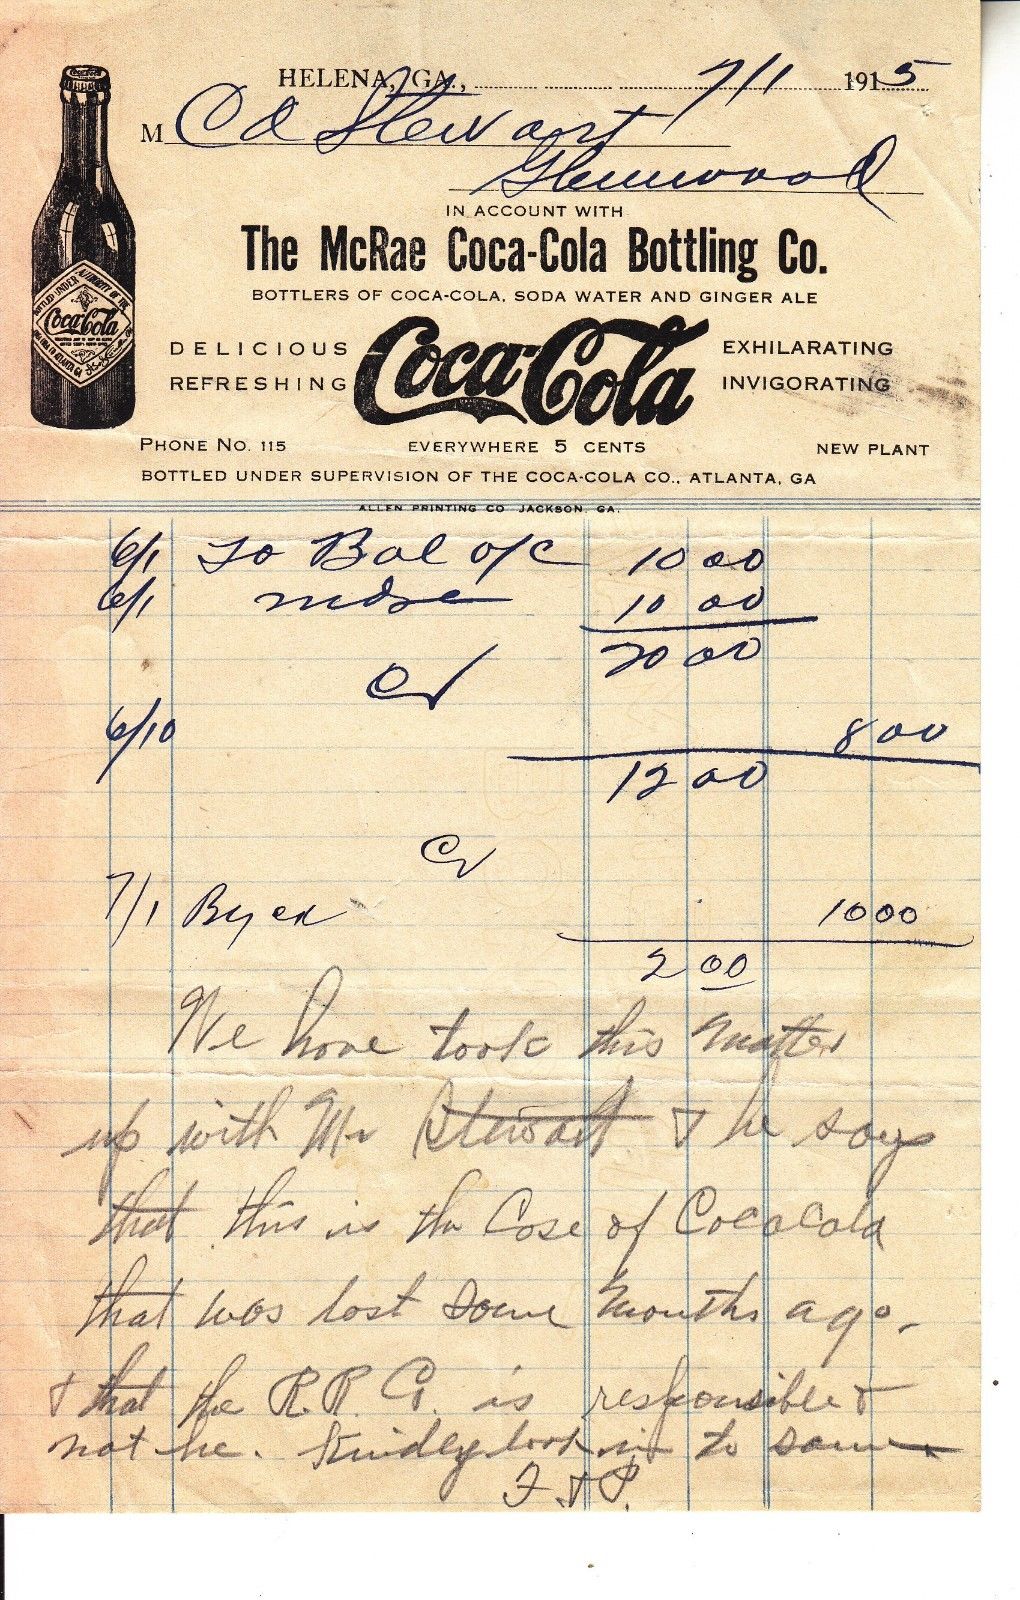 HELENA, GA., 7/1 1915
M Cd Stewart
Glenwood
IN ACCOUNT WITH
The McRae Coca-Cola Bottling Co.
BOTTLERS OF COCA-COLA, SODA WATER AND GINGER ALE
DELICIOUS
REFRESHING
Coca-Cola
EXHILARATING
INVIGORATING
BOTTLED UNDER AUTHORITY OF THE
Coca-Cola
PHONE NO. 115 EVERYWHERE 5 CENTS NEW PLANT
BOTTLED UNDER SUPERVISION OF THE COCA-COLA CO., ATLANTA, GA
ALLEN PRINTING CO JACKSON, GA.
6/1 To Bal a/c 10 00
6/1 mdse 10 00
20 00
Cr
6/10 8 00
12 00
Cr
7/1 By ck 10 00
2 00
We have took this matter
up with Mr Stewart & he says
that this is the Case of Cocacola
that was lost some months ago.
& that the R.R.G. is responsible &
not he. Kindly look in to same.
F & P.